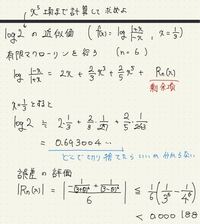 x⁵項まで計算して求めよ
log2 の近似値 (f(x)=log (1+x)/(1-x), x=1/3)
有限マクローリンを習う (n=6)
log (1+x)/(1-x) = 2x + 2/3 x³ + 2/5 x⁵ + Rₙ(x)
剰余項
x=1/3 とすると
log2 ≒ 2·1/3 + 2/3·1/27 + 2/5·1/243
= 0.693004…
どこで切り捨てたらいいのか分からない
誤差の評価
|Rₙ(x)| =
6
≤ 1/6 (1/3⁶ - 1/4⁶)
< 0.000188